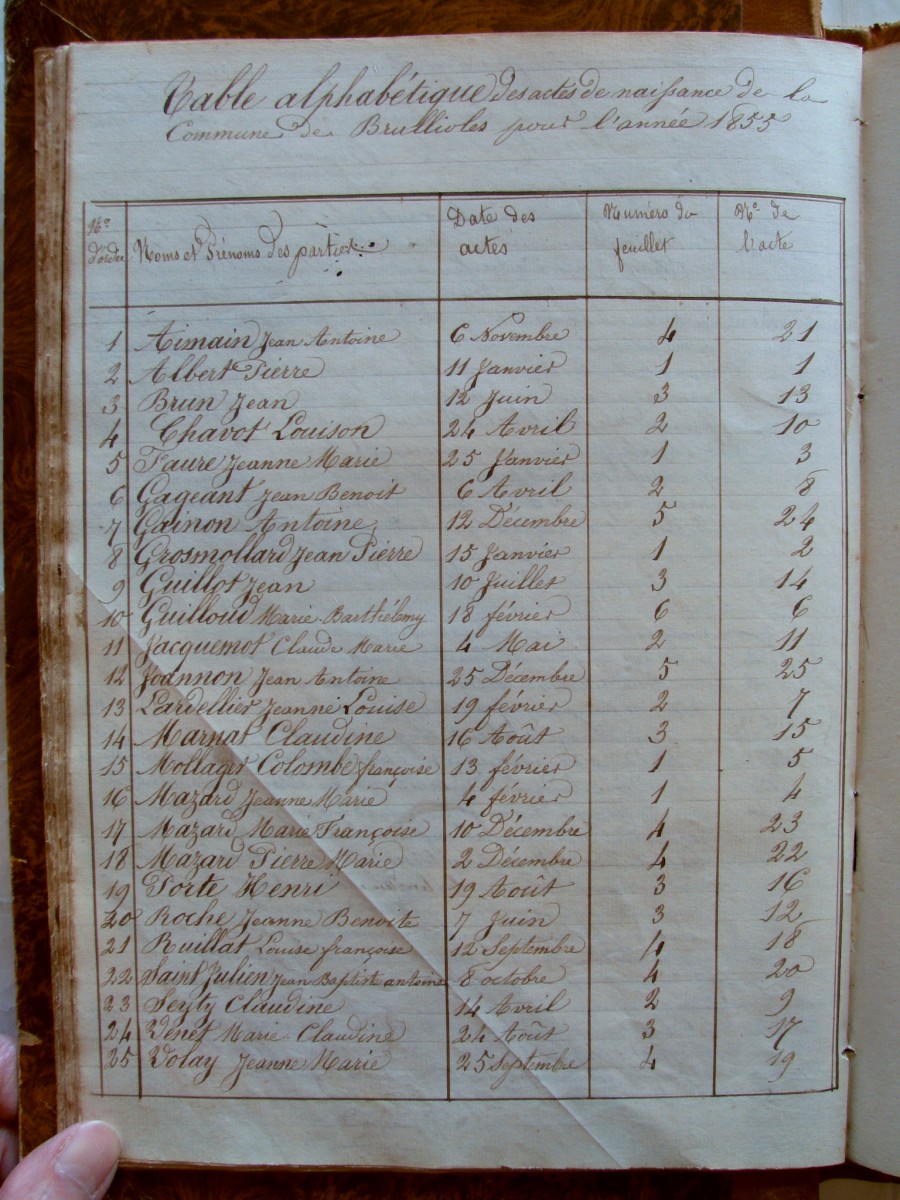 Table alphabétique des actes de naissance de la
Commune de Brullioles pour l'année 1855
N° d'ordre Noms et Prénoms des parties Date des actes Numéro du feuillet N° de l'acte
1 Aimain Jean Antoine 6 Novembre 4 21
2 Albert Pierre 11 Janvier 1 1
3 Brun Jean 12 Juin 3 13
4 Chavot Louison 24 Avril 2 10
5 Faure Jeanne Marie 25 Janvier 1 3
6 Gageant Jean Benoit 6 Avril 2 8
7 Gainon Antoine 12 Décembre 5 24
8 Grosmollard Jean Pierre 15 Janvier 1 2
9 Guillot Jean 10 Juillet 3 14
10 Guilloud Marie Barthélemy 18 février 6 6
11 Jacquemot Claude Marie 4 Mai 2 11
12 Joannon Jean Antoine 25 Décembre 5 25
13 Lardellier Jeanne Louise 19 février 2 7
14 Marnat Claudine 16 Août 3 15
15 Mollager Colombe françoise 13 février 1 5
16 Mazard Jeanne Marie 4 février 1 4
17 Mazard Marie Françoise 10 Décembre 4 23
18 Mazard Pierre Marie 2 Décembre 4 22
19 Porte Henri 19 Août 3 16
20 Roche Jeanne Benoite 7 Juin 3 12
21 Ruillat Louise françoise 12 Septembre 4 18
22 Saint Julien Jean Baptiste antoine 8 octobre 4 20
23 Seyty Claudine 14 Avril 2 9
24 Venet Marie Claudine 24 Août 3 17
25 Volay Jeanne Marie 25 Septembre 4 19